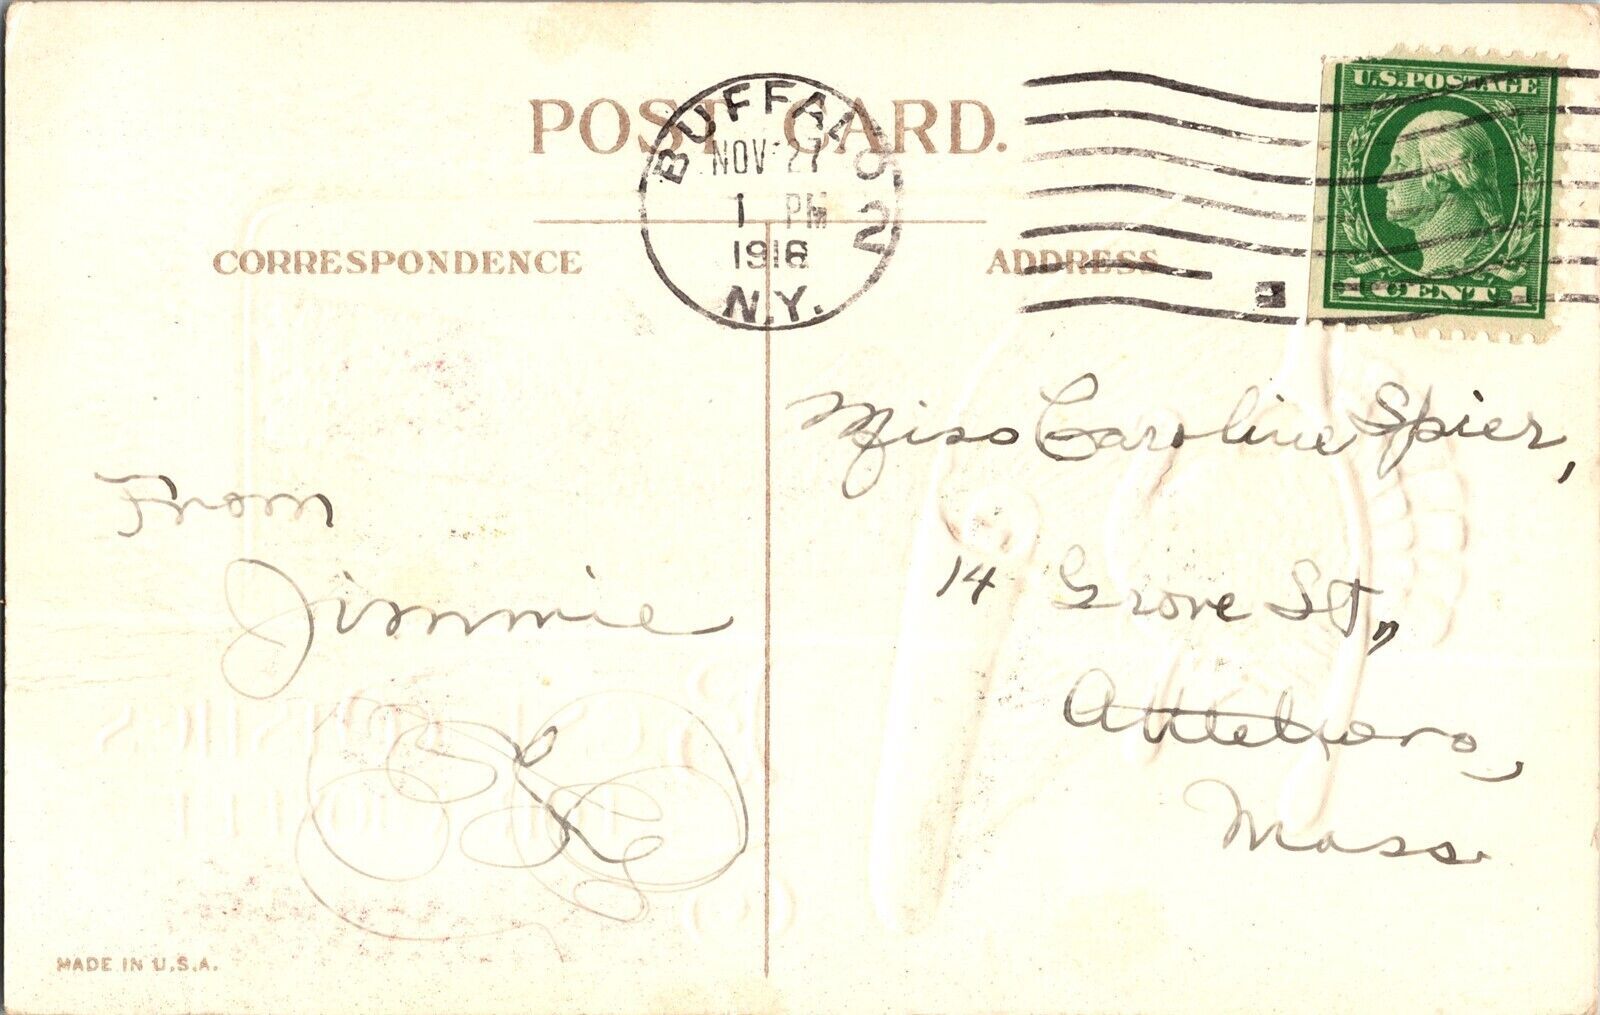 POST CARD.
BUFFALO, 2
NOV 27
1 PM
1916
N.Y.
U.S. POSTAGE
1 CENT 1
CORRESPONDENCE
ADDRESS
Miss Caroline Spier,
14 Grove St.,
Attleboro,
Mass.
From
Jimmie
BEST WISHES
MADE IN U.S.A.